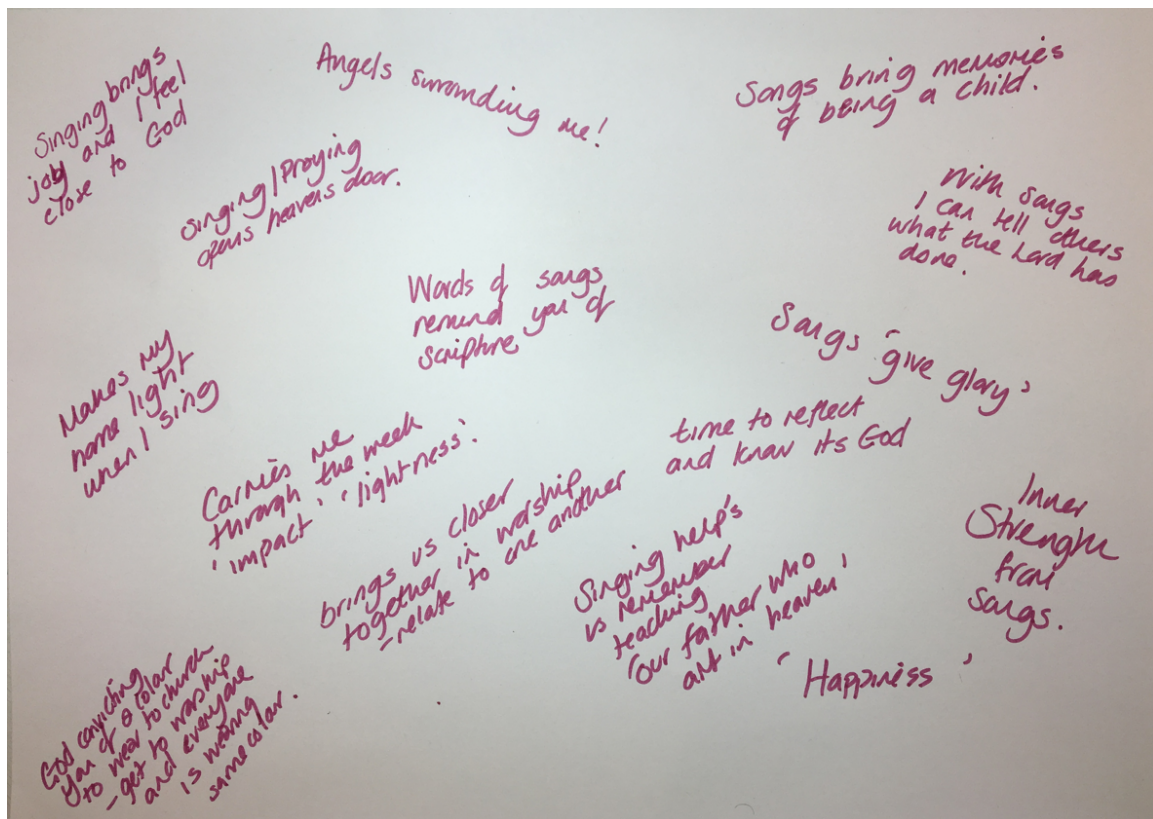 Singing brings
joy and I feel
close to God
Angels surronding me!
Songs bring memories
of being a child.
Singing/Praying
opens heavens door.
With songs
I can tell others
what the Lord has
done.
Words of songs
remind you of
scripture
Songs 'give glory'
Makes my
home light
when I sing
Carries me
through the week
'impact' 'lightness'.
time to reflect
and know its God
brings us closer
together in worship
- relate to one another
Singing help's
us remember
teaching
'our father who
art in heaven'
Inner
Strength
from
songs.
'Happiness'
God convicting
you of a colour
to wear to church
- get to worship
and everyone
is wearing
same colour.